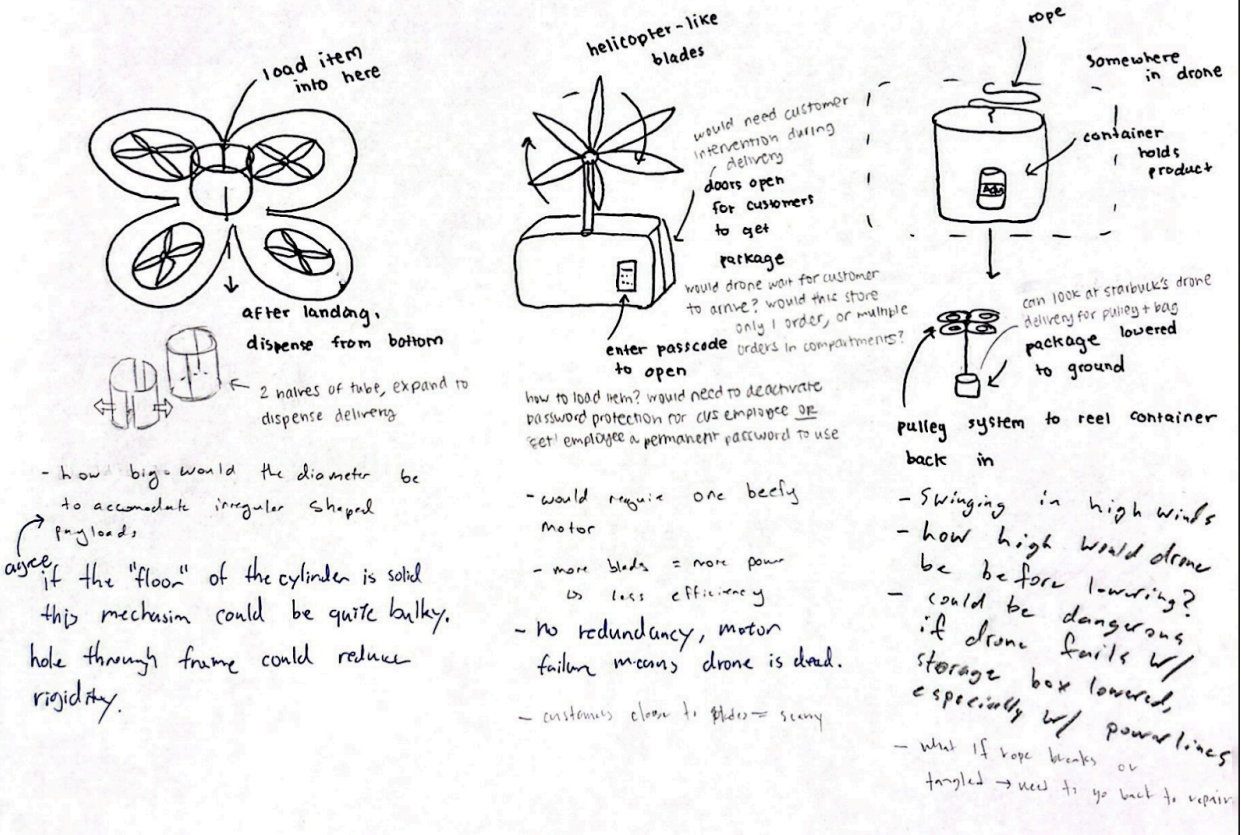 load item
into here
after landing,
dispense from bottom
2 halves of tube, expand to
dispense delivery
- how big would the diameter be
to accomodate irregular shaped
payloads
agree
if the "floor" of the cylinder is solid
this mechasim could be quite bulky.
hole through frame could reduce
rigidity.
helicopter-like
blades
would need customer
intervention during
delivery
doors open
for customers
to get
package
would drone wait for customer
to arrive? would this store
only 1 order, or multiple
orders in compartments?
enter passcode
to open
how to load item? would need to deactivate
password protection for CVS employee or
set employee a permanent password to use
- would require one beefy
motor
- more blads = more power
↳ less efficiency
- no redundancy, motor
failure means drone is dead.
- customers close to blades = scary
rope
somewhere
in drone
container
holds
product
Advil
can look at starbuck's drone
delivery for pulley + bag
package lowered
to ground
pulley system to reel container
back in
- swinging in high winds
- how high would drone
be before lowering?
- could be dangerous
if drone fails w/
storage box lowered,
especially w/ powerlines
- what if rope breaks or
tangled → need to go back to repair